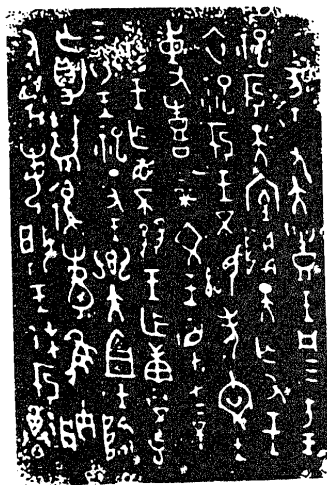 亥王又大豊王凡三方王
祀于天室降天亡又王
衣祀于王不顯考文王
事喜上帝文王監在上不
顯王乍省不王乍庚不克
乞衣王祀丁丑王鄉大宜王降
亡爵復橐隹朕
又敏揚王休于尊